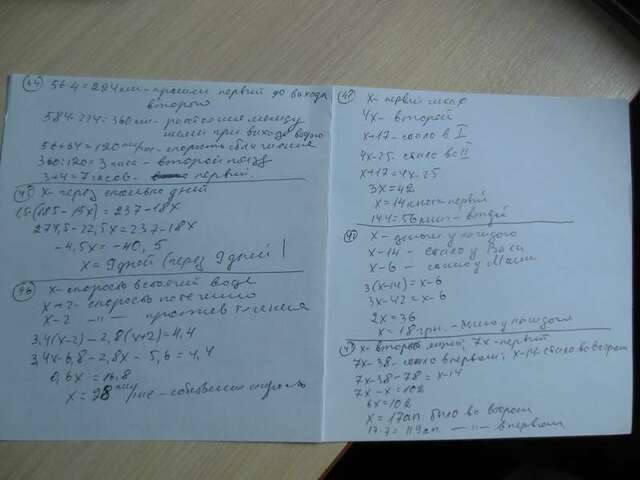 44 56·4=224км - прошел первый до выхода
второго
584-224=360км - расстояние между
ними при выходе второго
56+64=120 км/час - скорость сближения
360:120=3 часа - второй поезд
3+4=7 часов - первый.
45 х - через сколько дней
1,5(185-15х)=237-18х
277,5-22,5х=237-18х
-4,5х=-40,5
х=9 дней (через 9 дней)
46 х - скорость в стоячей воде
х+2 - скорость по течению
х-2 -"- против течения
3,4(х-2)-2,8(х+2)=4,4
3,4х-6,8-2,8х-5,6=4,4
0,6х=16,8
х=28 км/час - собственная скорость
47 х - первый
4х - второй
х+17 - стало в I
4х-25 стало во II
х+17=4х-25
3х=42
х=14 - первый
14·4=56 - второй
х - денег у каждого
х-14 - стало у Васи
х-6 - стало у Маши
3(х-14)=х-6
3х-42=х-6
2х=36
х=18грн. - было у каждого
х - второй ящик; 7х - первый
7х-38 - стало в первом; х-14 стало во втором
7х-38-78=х-14
7х-х=102
6х=102
х=17ап. было во втором
17·7=119ап. -"- в первом